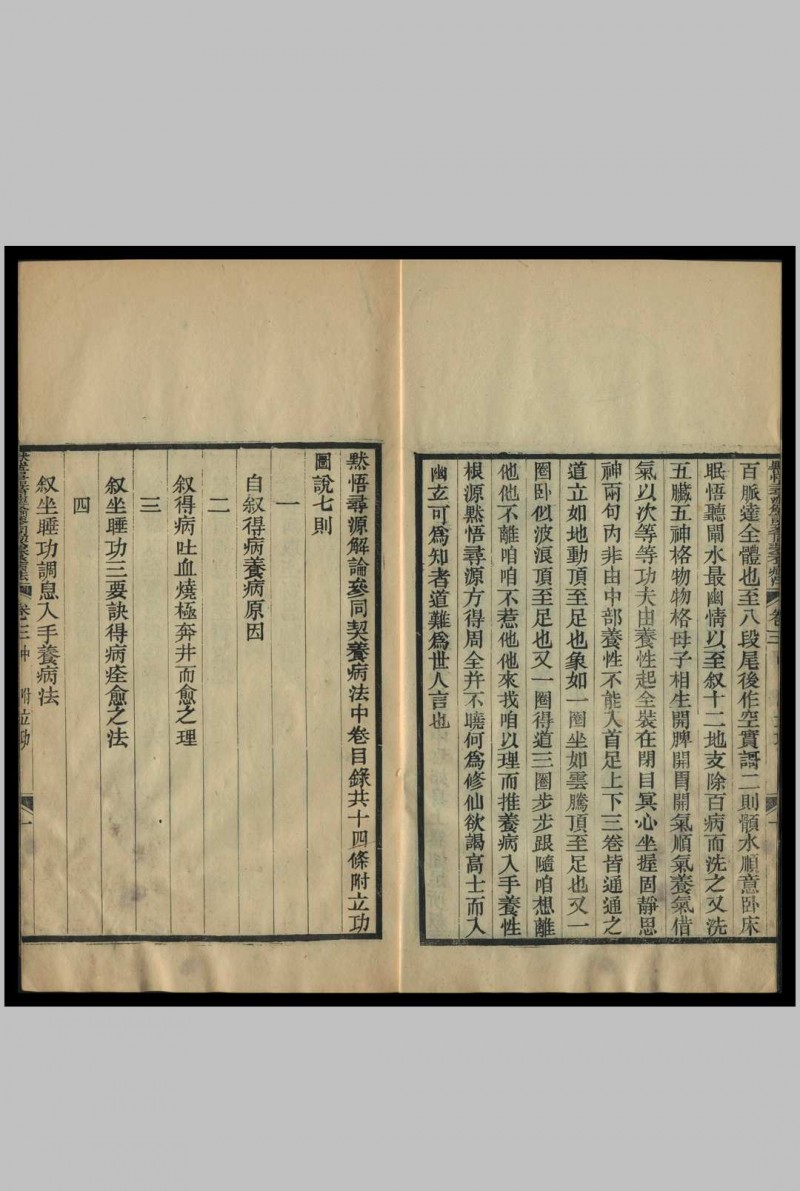 百脈達全體也至八段尾後作空實謌二則顖水順意卧床
眠悟聽閙水最幽情以至叙十二地支除百病而洗之又洗
五臟五神格物物格母子相生開脾開胃開氣順氣養氣借
氣以次等等功夫由養性起全裝在閉目冥心坐握固靜思
神兩句內非由中部養性不能入首足上下三卷皆通通之
道立如地動頂至足也象如一圈坐如雲騰頂至足也又一
圈卧似波浪頂至足也又一圈得道三圈步步跟隨咱想離
他他不離咱咱不惹他他來找咱以理而推養病入手養性
根源默悟尋源方得周全并不曉何為修仙欲謁高士而入
幽玄可為知者道難為世人言也
默悟尋源解論參同契養病法中卷目錄共十四條附立功
圖說七則
一
自叙得病養病原因
二
叙得病吐血燒極奔井而愈之理
三
叙坐睡功三要訣得病痊愈之法
四
叙坐睡功調息入手養病法
卷三中 附立功 一